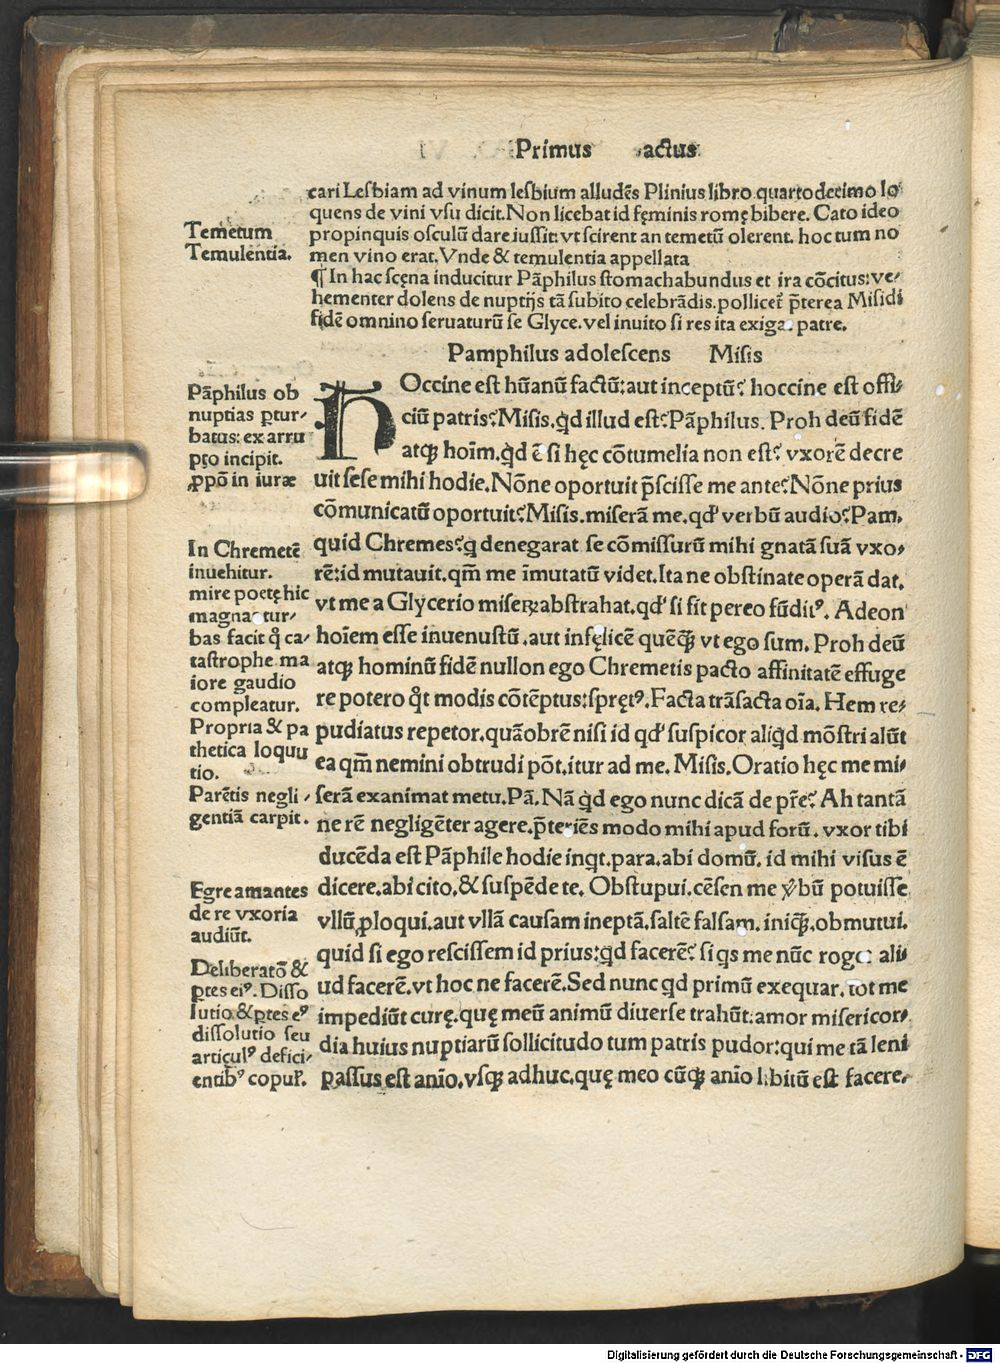 Primus actus
cari Lesbiam ad vinum lesbium alludēs Plinius libro quartodecimo lo
quens de vini vsu dicit. Non licebat id fęminis romę bibere. Cato ideo
propinquis osculū dare iussit: vt scirent an temetū olerent. hoc tum no
men vino erat. Vnde & temulentia appellata
¶ In hac scęna inducitur Pāphilus stomachabundus et ira cōcitus: ve-
hementer dolens de nuptijs tā subito celebrādis. pollicet̄ p̄terea Misidi
fidē omnino seruaturū se Glyce. vel inuito si res ita exiga. patre.
Temetum
Temulentia.
Pamphilus adolescens Misis
HOccine est hūanū factū: aut inceptū? hoccine est offi-
ciū patris? Misis. qd illud est? Pāphilus. Proh deū fidē
atqꝫ hoīm. qd ē si hęc cōtumelia non est? vxorē decre
uit sese mihi hodie. Nōne oportuit p̄scisse me ante? Nōne prius
cōmunicatū oportuit? Misis. miserā me. qđ verbū audio? Pam.
quid Chremes? q denegarat se cōmissurū mihi gnatā suā vxo-
rē: id mutauit. qm̄ me īmutatū videt. Ita ne obstinate operā dat.
vt me a Glycerio miseꝝ abstrahat. qđ si fit pereo fūditꝰ. Adeon
hoīem esse inuenustū. aut infęlicē quēqꝫ vt ego sum. Proh deū
atqꝫ hominū fidē nullon ego Chremetis pacto affinitatē effuge
re potero qͦt modis cōtēptus: spretꝰ. Facta trāsacta oīa. Hem re-
pudiatus repetor. quāobrē nisi id qđ suspicor aliqd mōstri alūt
ea qm̄ nemini obtrudi pōt. itur ad me. Misis. Oratio hęc me mi-
serā exanimat metu. Pā. Nā qd ego nunc dicā de pr̄e? Ah tantā
ne rē negligēter agere. p̄teriēs modo mihi apud forū. vxor tibi
ducēda est Pāphile hodie inqt. para. abi domū. id mihi visus ē
dicere. abi cito. & suspēde te. Obstupui. cēsen me v̄bū potuisse
vllū ꝓloqui. aut vllā causam ineptā. saltē falsam. iniqꝫ. obmutui.
quid si ego rescissem id prius: qd facerē? si qs me nūc roget ali-
ud facerē. vt hoc ne facerē. Sed nunc qd primū exequar. tot me
impediūt curę. quę meū animū diuerse trahūt: amor misericor-
dia huius nuptiarū sollicitudo tum patris pudor: qui me tā leni
passus est anīo. vsqꝫ adhuc. quę meo cūqꝫ anīo libitū est facere.
Pāphilus ob
nuptias ꝑtur-
batus: ex arru
pto incipit.
ꝓpō in iuræ
In Chremetē
inuehitur.
mire poetę hic
magnas tur-
bas facit q̄ ca-
tastrophe ma
iore gaudio
compleatur.
Propria & pa
thetica loquu
tio.
Parētis negli-
gentiā carpit.
Egre amantes
de re vxoria
audiūt.
Deliberatō &
ꝑtes eiꝰ. Disso
lutio & ꝑtes eꝰ
dissolutio seu
articulꝰ defici-
entibꝰ copul̄.
Digitalisierung gefördert durch die Deutsche Forschungsgemeinschaft - DFG